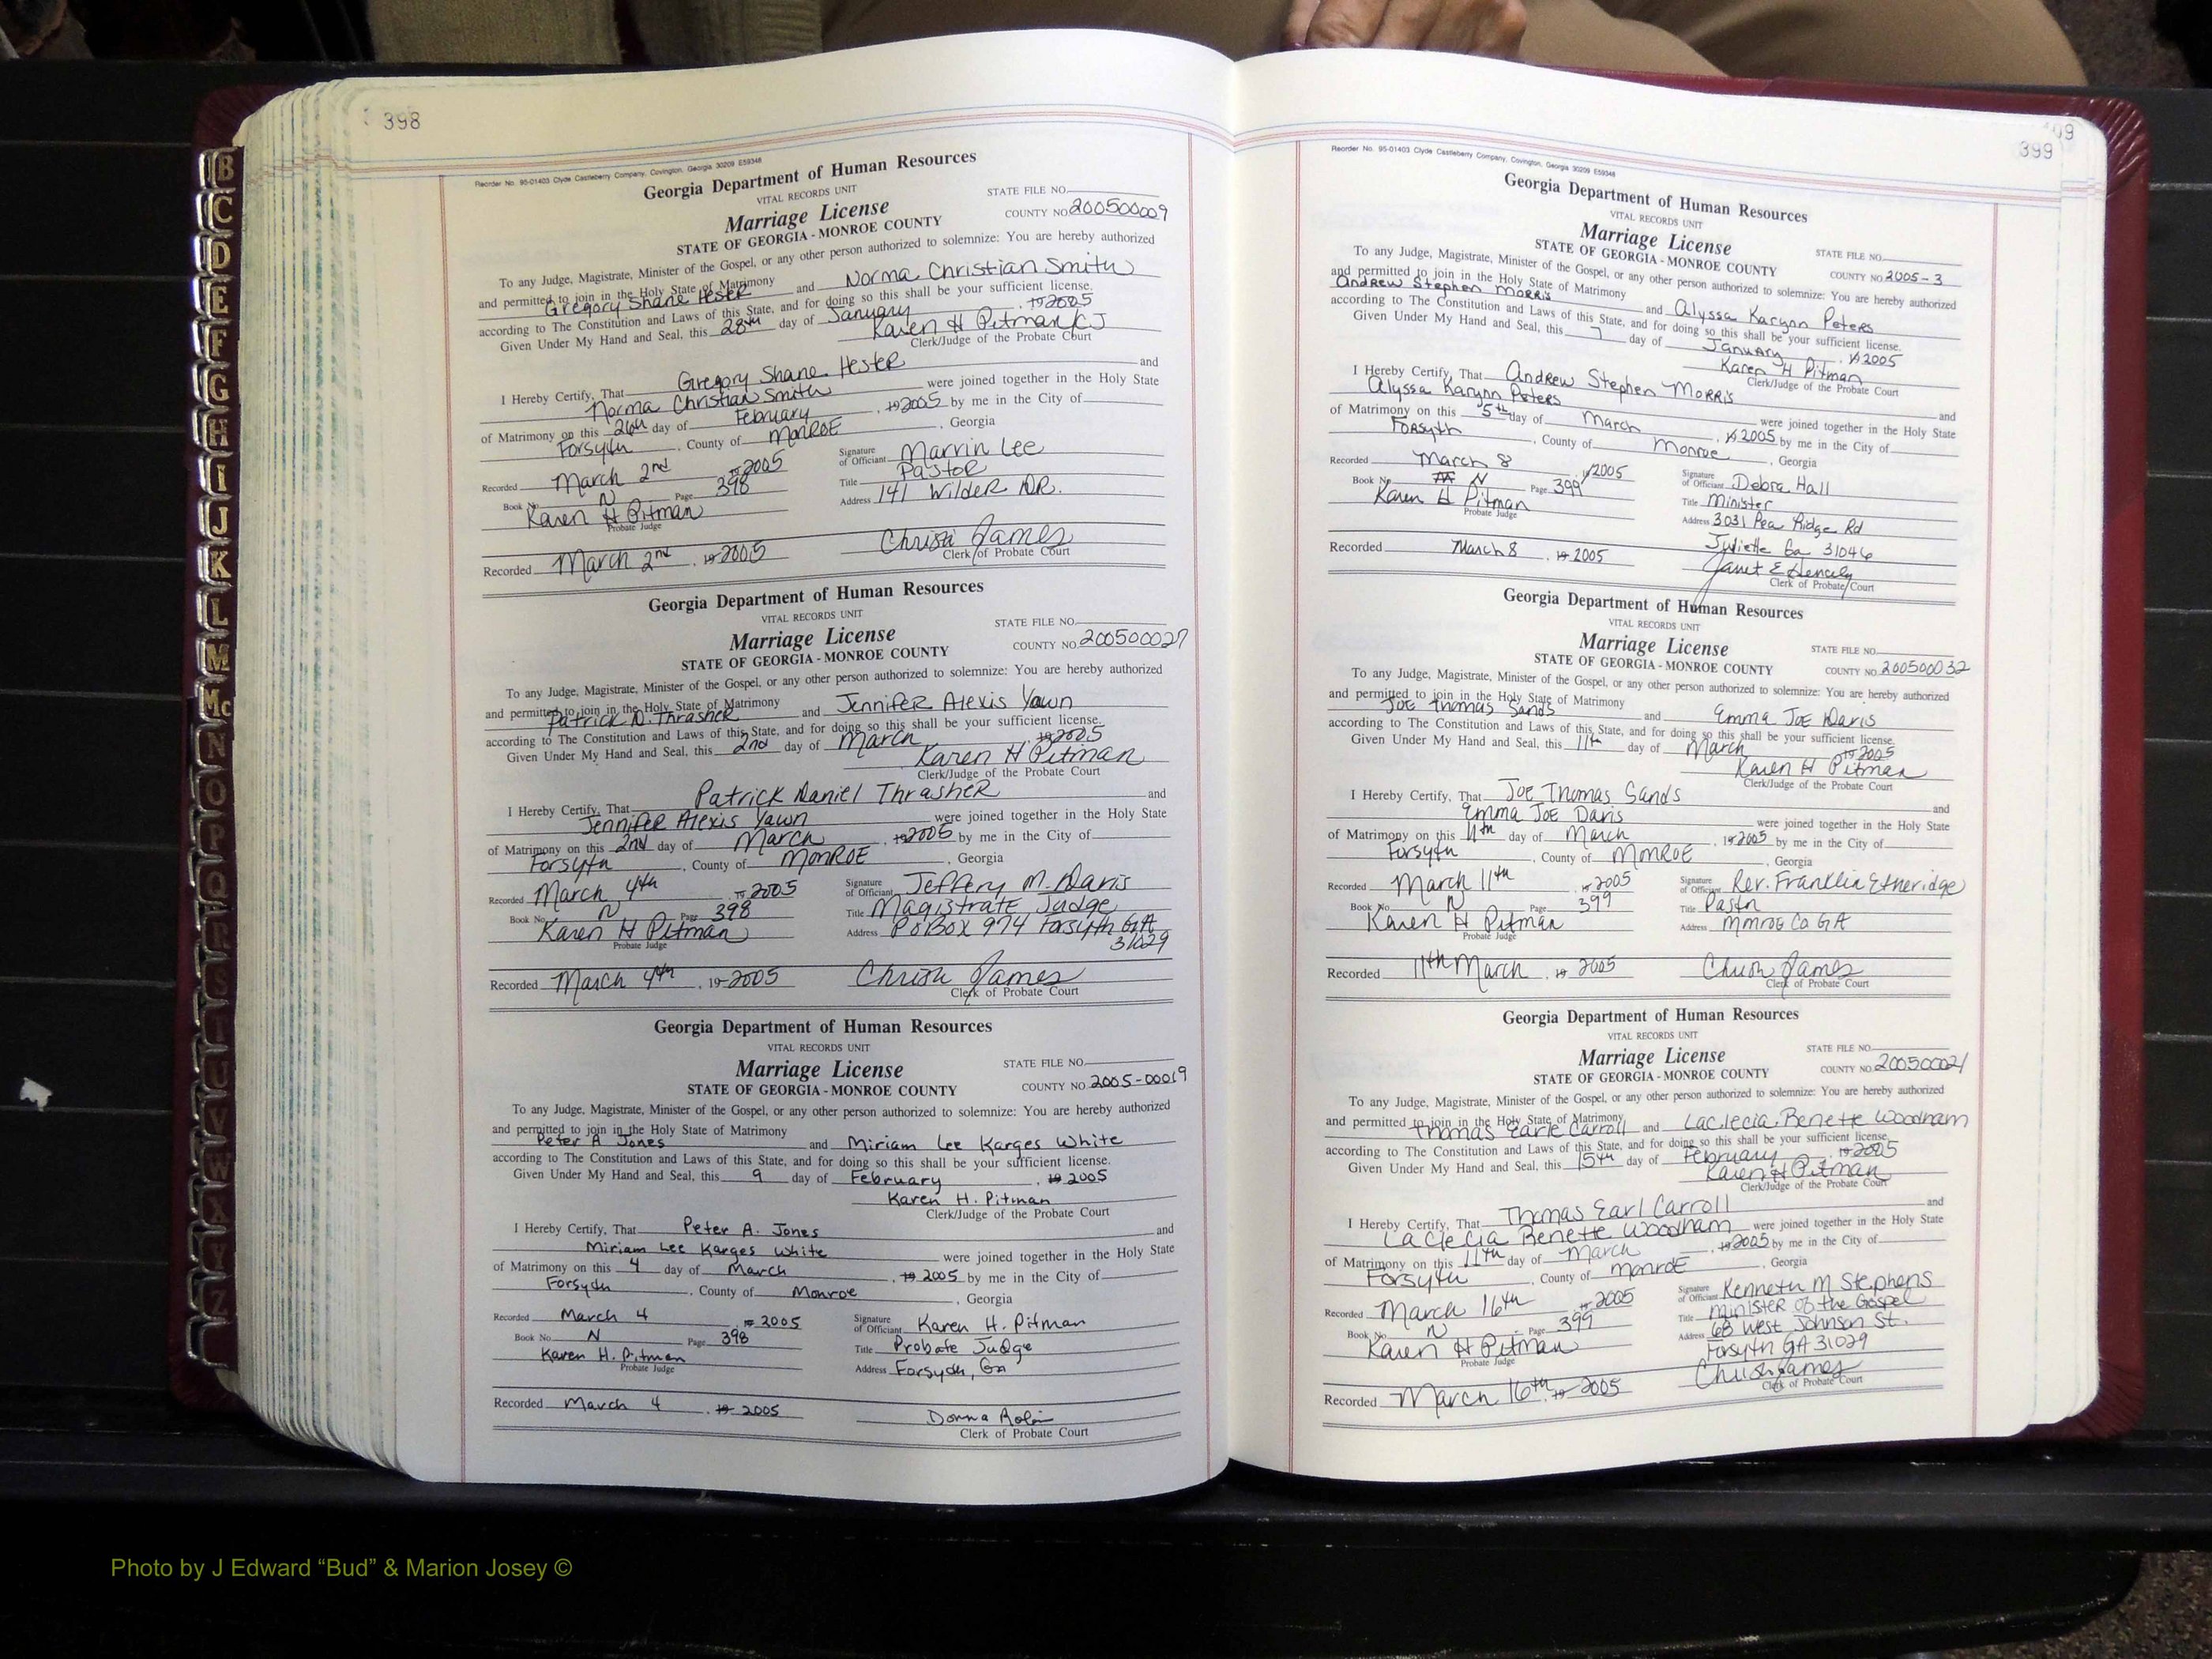 398
Reorder No. 95-01403 Clyde Castleberry Company, Covington, Georgia 30209 E59348
Georgia Department of Human Resources
VITAL RECORDS UNIT
STATE FILE NO.
Marriage License
COUNTY NO 200500009
STATE OF GEORGIA - MONROE COUNTY
To any Judge, Magistrate, Minister of the Gospel, or any other person authorized to solemnize: You are hereby authorized
and permitted to join in the Holy State of Matrimony
Gregory Shane Hester and Norma Christian Smith
according to The Constitution and Laws of this State, and for doing so this shall be your sufficient license.
Given Under My Hand and Seal, this 28th day of January, 19 2005
Karen H Pitman KJ
Clerk/Judge of the Probate Court
I Hereby Certify, That Gregory Shane Hester and
Norma Christian Smith were joined together in the Holy State
of Matrimony on this 26th day of February, 19 2005 by me in the City of
Forsyth, County of MONROE, Georgia
Recorded March 2nd 19 2005
Signature of Officiant Marvin Lee
Book No. N Page 398
Title Pastor
Karen H Pitman
Address 141 Wilder DR.
Probate Judge
Recorded March 2nd, 19 2005
Christi James
Clerk of Probate Court
Georgia Department of Human Resources
VITAL RECORDS UNIT
STATE FILE NO.
Marriage License
COUNTY NO 200500027
STATE OF GEORGIA - MONROE COUNTY
To any Judge, Magistrate, Minister of the Gospel, or any other person authorized to solemnize: You are hereby authorized
and permitted to join in the Holy State of Matrimony
Patrick D. Thrasher and Jennifer Alexis Yawn
according to The Constitution and Laws of this State, and for doing so this shall be your sufficient license.
Given Under My Hand and Seal, this 2nd day of March, 19 2005
Karen H Pitman
Clerk/Judge of the Probate Court
I Hereby Certify, That Patrick Daniel Thrasher and
Jennifer Alexis Yawn were joined together in the Holy State
of Matrimony on this 2nd day of March, 19 2005 by me in the City of
Forsyth, County of MONROE, Georgia
Recorded March 4th 19 2005
Signature of Officiant Jeffery M. Davis
Book No. N Page 398
Title Magistrate Judge
Karen H Pitman
Address PO Box 974 Forsyth GA
31029
Probate Judge
Recorded March 4th, 19 2005
Christi James
Clerk of Probate Court
Georgia Department of Human Resources
VITAL RECORDS UNIT
STATE FILE NO.
Marriage License
COUNTY NO 2005-00019
STATE OF GEORGIA - MONROE COUNTY
To any Judge, Magistrate, Minister of the Gospel, or any other person authorized to solemnize: You are hereby authorized
and permitted to join in the Holy State of Matrimony
Peter A Jones and Miriam Lee Karges White
according to The Constitution and Laws of this State, and for doing so this shall be your sufficient license.
Given Under My Hand and Seal, this 9 day of February, 19 2005
Karen H. Pitman
Clerk/Judge of the Probate Court
I Hereby Certify, That Peter A. Jones and
Miriam Lee Karges White were joined together in the Holy State
of Matrimony on this 4 day of March, 19 2005 by me in the City of
Forsyth, County of Monroe, Georgia
Recorded March 4, 19 2005
Signature of Officiant Karen H. Pitman
Book No. N Page 398
Title Probate Judge
Karen H. Pitman
Address Forsyth, Ga
Probate Judge
Recorded March 4, 19 2005
Donna
Clerk of Probate Court
399
Reorder No. 95-01403 Clyde Castleberry Company, Covington, Georgia 30209 E59348
Georgia Department of Human Resources
VITAL RECORDS UNIT
Marriage License
STATE FILE NO.
STATE OF GEORGIA - MONROE COUNTY
COUNTY NO 2005-3
To any Judge, Magistrate, Minister of the Gospel, or any other person authorized to solemnize: You are hereby authorized
and permitted to join in the Holy State of Matrimony
Andrew Stephen Morris and Alyssa Karynn Peters
according to The Constitution and Laws of this State, and for doing so this shall be your sufficient license.
Given Under My Hand and Seal, this 7 day of January, 19 2005
Karen H Pitman
Clerk/Judge of the Probate Court
I Hereby Certify, That Andrew Stephen Morris and
Alyssa Karynn Peters were joined together in the Holy State
of Matrimony on this 5th day of March, 19 2005 by me in the City of
Forsyth, County of Monroe, Georgia
Recorded March 8, 19 2005
Signature of Officiant Debra Hall
Book No. N Page 399
Title Minister
Karen H Pitman
Address 3031 Pea Ridge Rd
Probate Judge
Juliette Ga 31046
Recorded March 8, 19 2005
Janet E
Clerk of Probate Court
Georgia Department of Human Resources
VITAL RECORDS UNIT
Marriage License
STATE FILE NO.
STATE OF GEORGIA - MONROE COUNTY
COUNTY NO 200500032
To any Judge, Magistrate, Minister of the Gospel, or any other person authorized to solemnize: You are hereby authorized
and permitted to join in the Holy State of Matrimony
Joe Thomas Sands and Emma Joe Davis
according to The Constitution and Laws of this State, and for doing so this shall be your sufficient license.
Given Under My Hand and Seal, this 11th day of March 19 2005
Karen H Pitman
Clerk/Judge of the Probate Court
I Hereby Certify, That Joe Thomas Sands and
Emma Joe Davis were joined together in the Holy State
of Matrimony on this 11th day of March, 19 2005 by me in the City of
Forsyth, County of MONROE, Georgia
Recorded March 11th, 19 2005
Signature of Officiant Rev. Franklin Etheridge
Book No. N Page 399
Title Pastor
Karen H Pitman
Address Monroe Co GA
Probate Judge
Recorded 11th March, 19 2005
Christi James
Clerk of Probate Court
Georgia Department of Human Resources
VITAL RECORDS UNIT
Marriage License
STATE FILE NO.
STATE OF GEORGIA - MONROE COUNTY
COUNTY NO 200500021
To any Judge, Magistrate, Minister of the Gospel, or any other person authorized to solemnize: You are hereby authorized
and permitted to join in the Holy State of Matrimony
Thomas Earle Carroll and Laclecia Benette Woodham
according to The Constitution and Laws of this State, and for doing so this shall be your sufficient license.
Given Under My Hand and Seal, this 15th day of February, 19 2005
Karen H Pitman
Clerk/Judge of the Probate Court
I Hereby Certify, That Thomas Earl Carroll and
Laclecia Benette Woodham were joined together in the Holy State
of Matrimony on this 11th day of March, 19 2005 by me in the City of
Forsyth, County of monroE, Georgia
Recorded March 16th, 19 2005
Signature of Officiant Kenneth M Stephens
Book No. N Page 399
Title Minister of the Gospel
Karen H Pitman
Address 68 West Johnson St.
Probate Judge
Forsyth GA 31029
Recorded March 16th, 19 2005
Christi James
Clerk of Probate Court
B
C
D
E
F
G
H
I
J
K
L
M
Mc
N
O
P
Q
R
S
T
U
V
W
X
Y
Z
Photo by J Edward “Bud” & Marion Josey ©